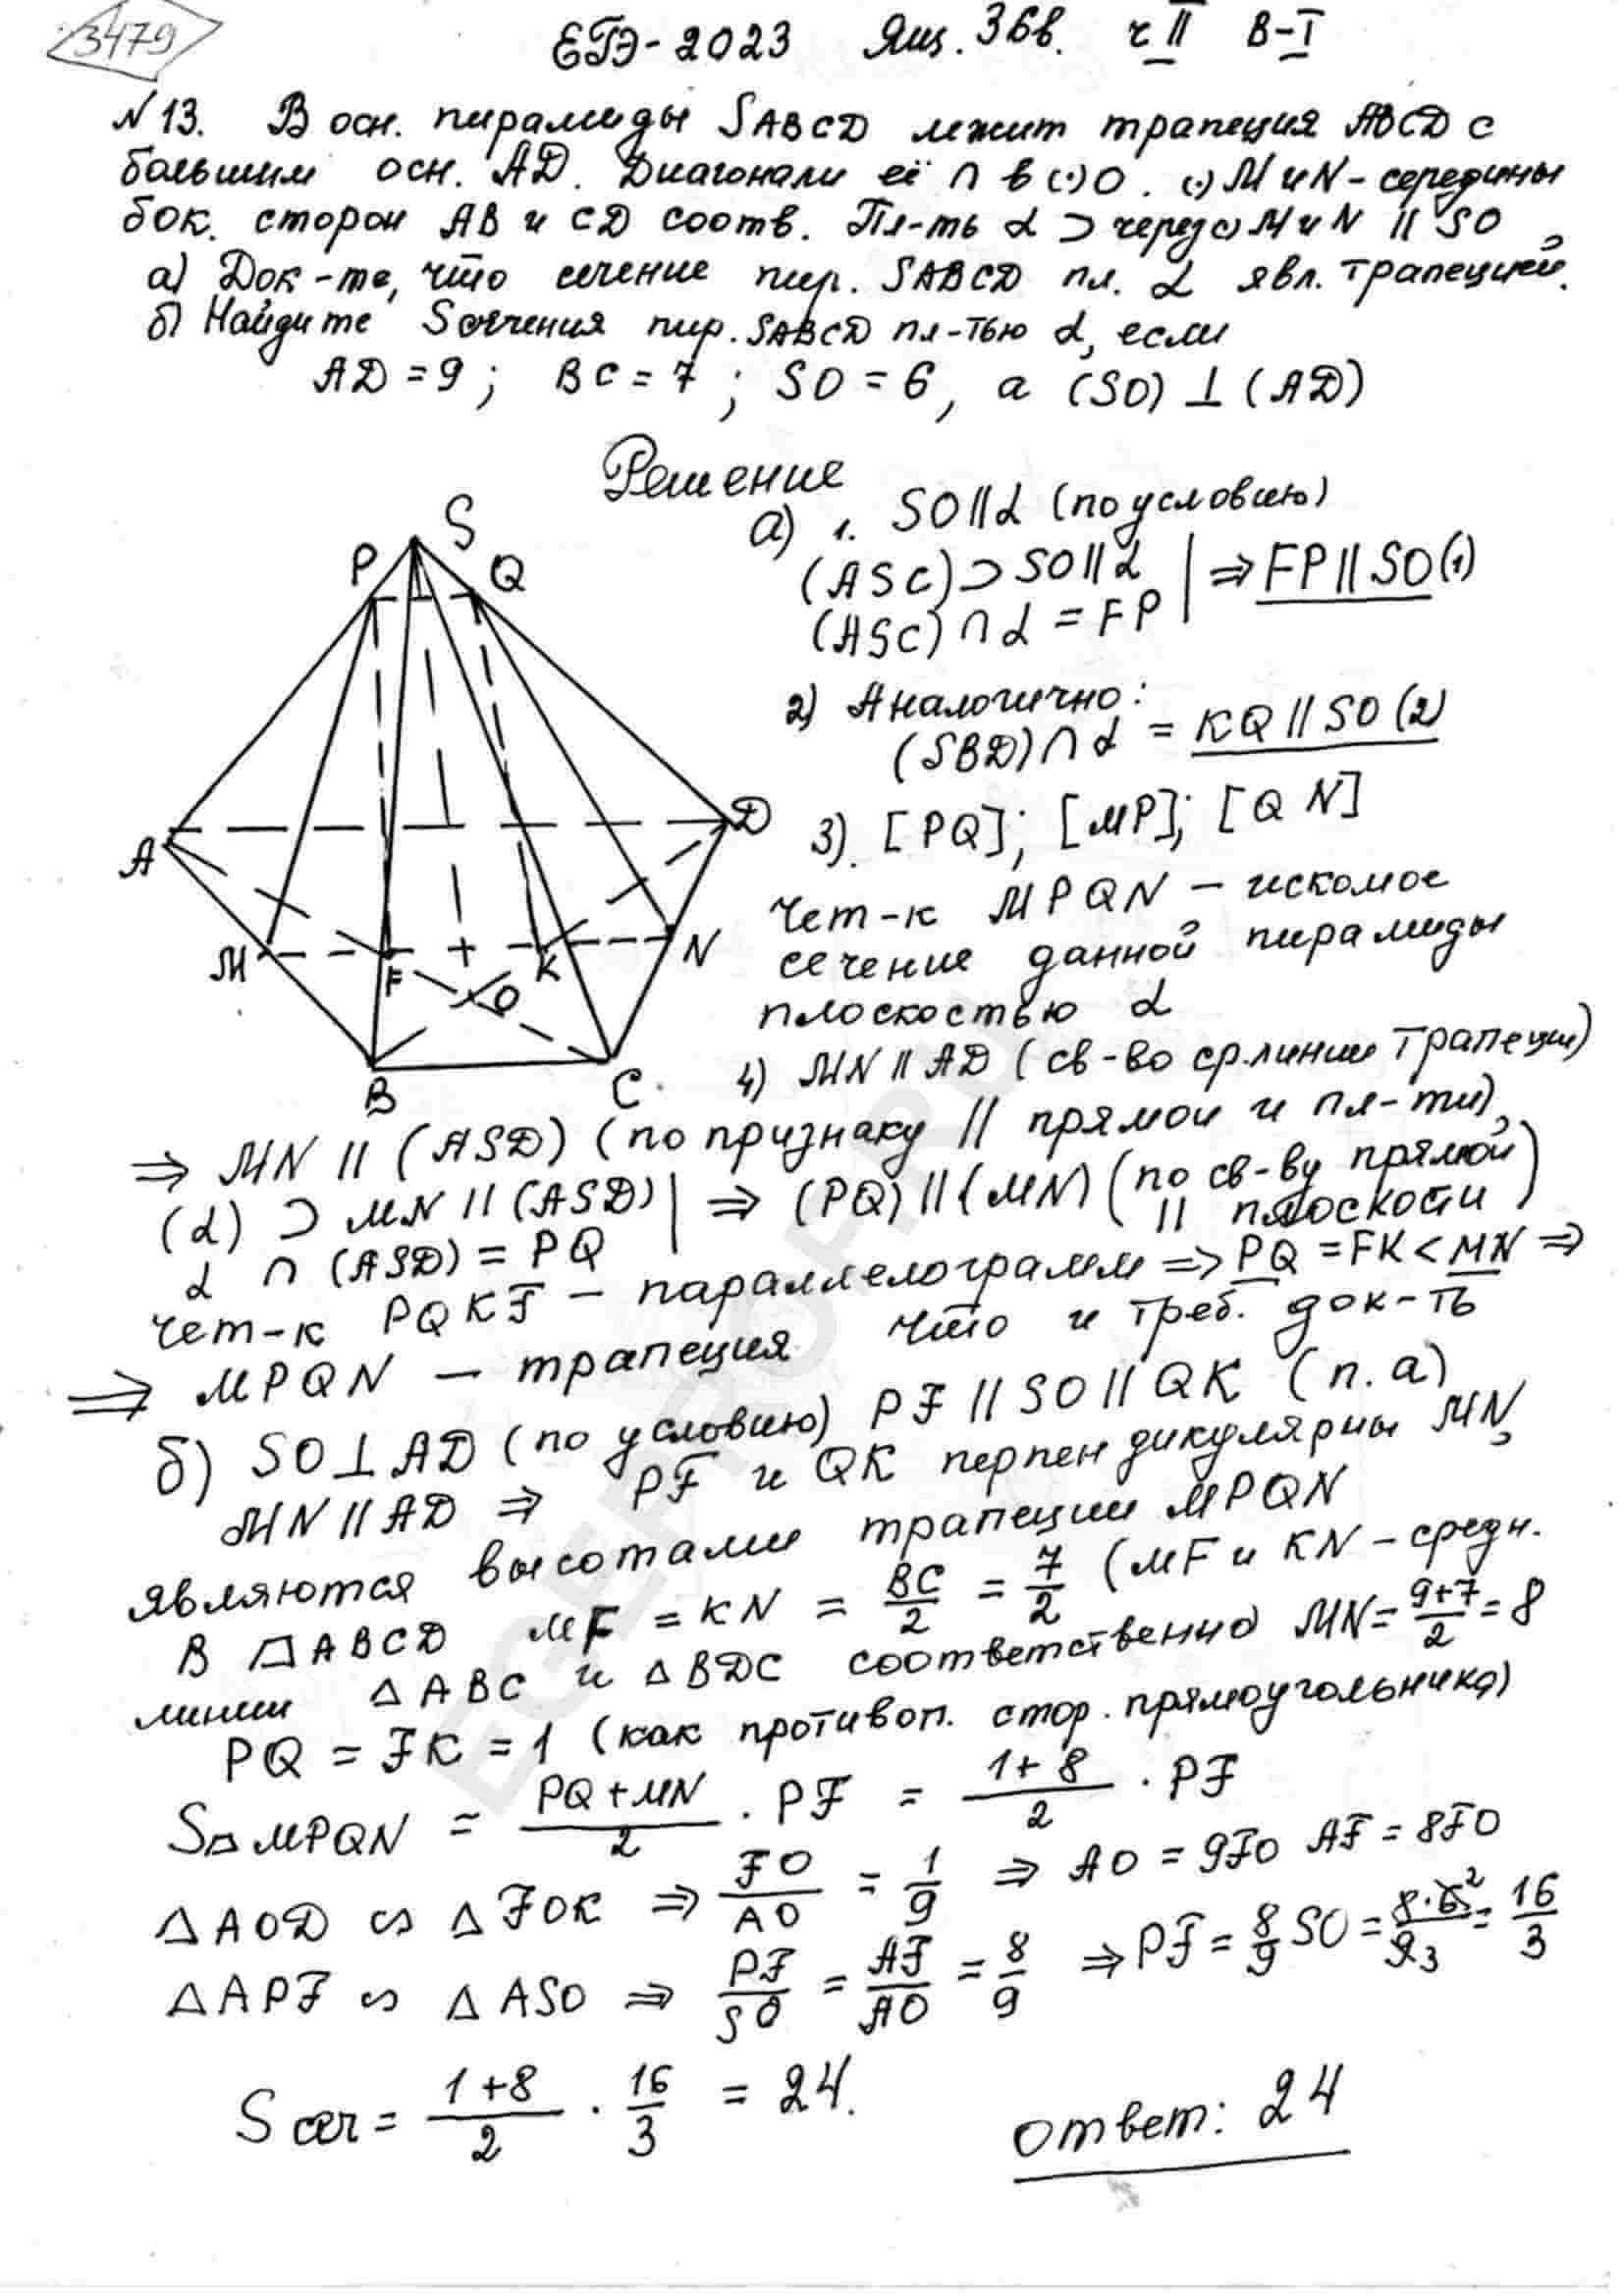 3479
ЕГЭ-2023 Ящ. 36в. ч II В-I
№13. В осн. пирамиды SABCD лежит трапеция ABCD с
большим осн. AD. Диагонали её ∩ в (·)O. (·) M и N - середины
бок. сторон AB и CD соотв. Пл-ть α ⊃ через (·) M и N || SO
а) Док-те, что сечение пир. SABCD пл. α явл. трапецией.
б) Найдите Sсечения пир. SABCD пл-тью α, если
AD = 9; BC = 7; SO = 6, а (SO) ⊥ (AD)
Решение
а) 1. SO || α (по условию)
(ASC) ⊃ SO || α | ⇒ FP || SO (1)
(ASC) ∩ α = FP
2) Аналогично:
(SBD) ∩ α = KQ || SO (2)
3). [PQ]; [MP]; [QN]
Чет-к MPQN - искомое
сечение данной пирамиды
плоскостью α
S
P
Q
A
D
M
F
K
N
O
B
C
4) MN || AD (св-во ср.линии трапеции)
⇒ MN || (ASD) (по признаку || прямой и пл-ти),
(α) ⊃ MN || (ASD) | ⇒ (PQ) || (MN) (по св-ву прямой || плоскости)
α ∩ (ASD) = PQ
чет-к PQKF - параллелограмм ⇒ PQ = FK < MN ⇒
⇒ MPQN - трапеция что и треб. док-ть
б) SO ⊥ AD (по условию) PF || SO || QK (п. а)
MN || AD ⇒ PF и QK перпендикулярны MN,
являются высотами трапеции MPQN
В ▱ABCD MF = KN = BC/2 = 7/2 (MF и KN - средн.
линии △ABC и △BDC соответственно MN = 9+7/2 = 8
PQ = FK = 1 (как противоп. стор. прямоугольника)
S▱MPQN = PQ+MN/2 · PF = 1+8/2 · PF
△AOD ∽ △FOK ⇒ FO/AO = 1/9 ⇒ AO = 9FO AF = 8FO
△APF ∽ △ASO ⇒ PF/SO = AF/AO = 8/9 ⇒ PF = 8/9 SO = 8·6²/9₃ = 16/3
Sсеч = 1+8/2 · 16/3 = 24.
Ответ: 24